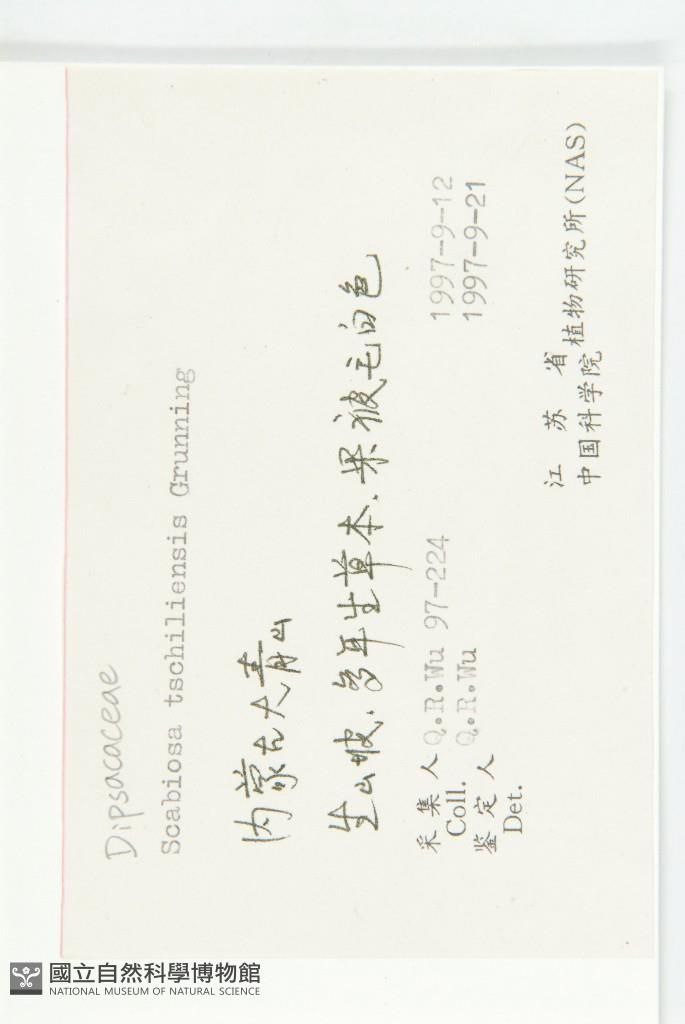 Dipsacaceae
Scabiosa tschiliensis Grunning
内蒙古大青山
生山坡.多年生草本.果被毛白色
采集人 Q.R.Wu 97-224 1997-9-12
Coll.
鉴定人 Q.R.Wu 1997-9-21
Det.
江苏省
中国科学院植物研究所(NAS)
國立自然科學博物館
NATIONAL MUSEUM OF NATURAL SCIENCE